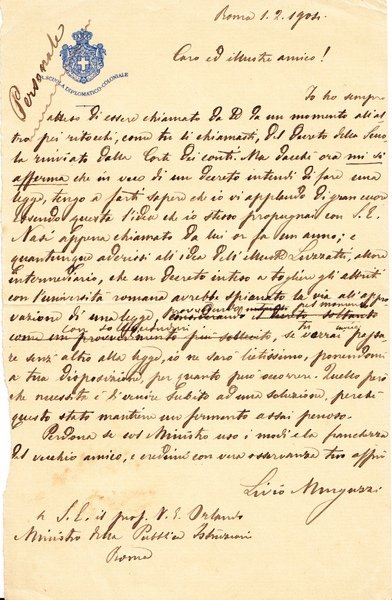 Roma 1. 2. 1904.
Personale
R. SCUOLA DIPLOMATICO-COLONIALE
Caro ed illustre amico!
Io ho sempre
atteso di essere chiamato da te da un momento all'al-
tro pei ritocchi, come tu li chiamasti, del Decreto della Scuo
la rinviato dalla Corte dei conti. Ma dacchè ora mi si
afferma che in vece di un decreto intendi di fare una
legge, tengo a farti sapere che io vi applaudo di gran cuore
essendo questa l'idea che io stesso propugnai con S. E.
Nasi appena chiamato da lui or fa un anno; e
quantunque aderissi alla idea dell'illustre Luzzatti, allora
intermediario, che un decreto inteso a togliere gli attriti
con l'università romana avrebbe spianato la via all'appro-
vazione di una legge,
come un provvedimento più sollecito, se vorrai passa
re senz'altro alla legge, io ne sarò lietissimo, ponendomi
a tua disposizione, per quanto può occorrere. Quello però
che necessita è di venire subito ad una soluzione, perchè
questo stato mantiene un fermento assai penoso.
Perdona se col Ministro uso i modi e la franchezza
del vecchio amico, e credimi con vera osservanza tuo
Livio
A S. E. il prof. V. E. Orlando
Ministro della Pubblica Istruzione
Roma